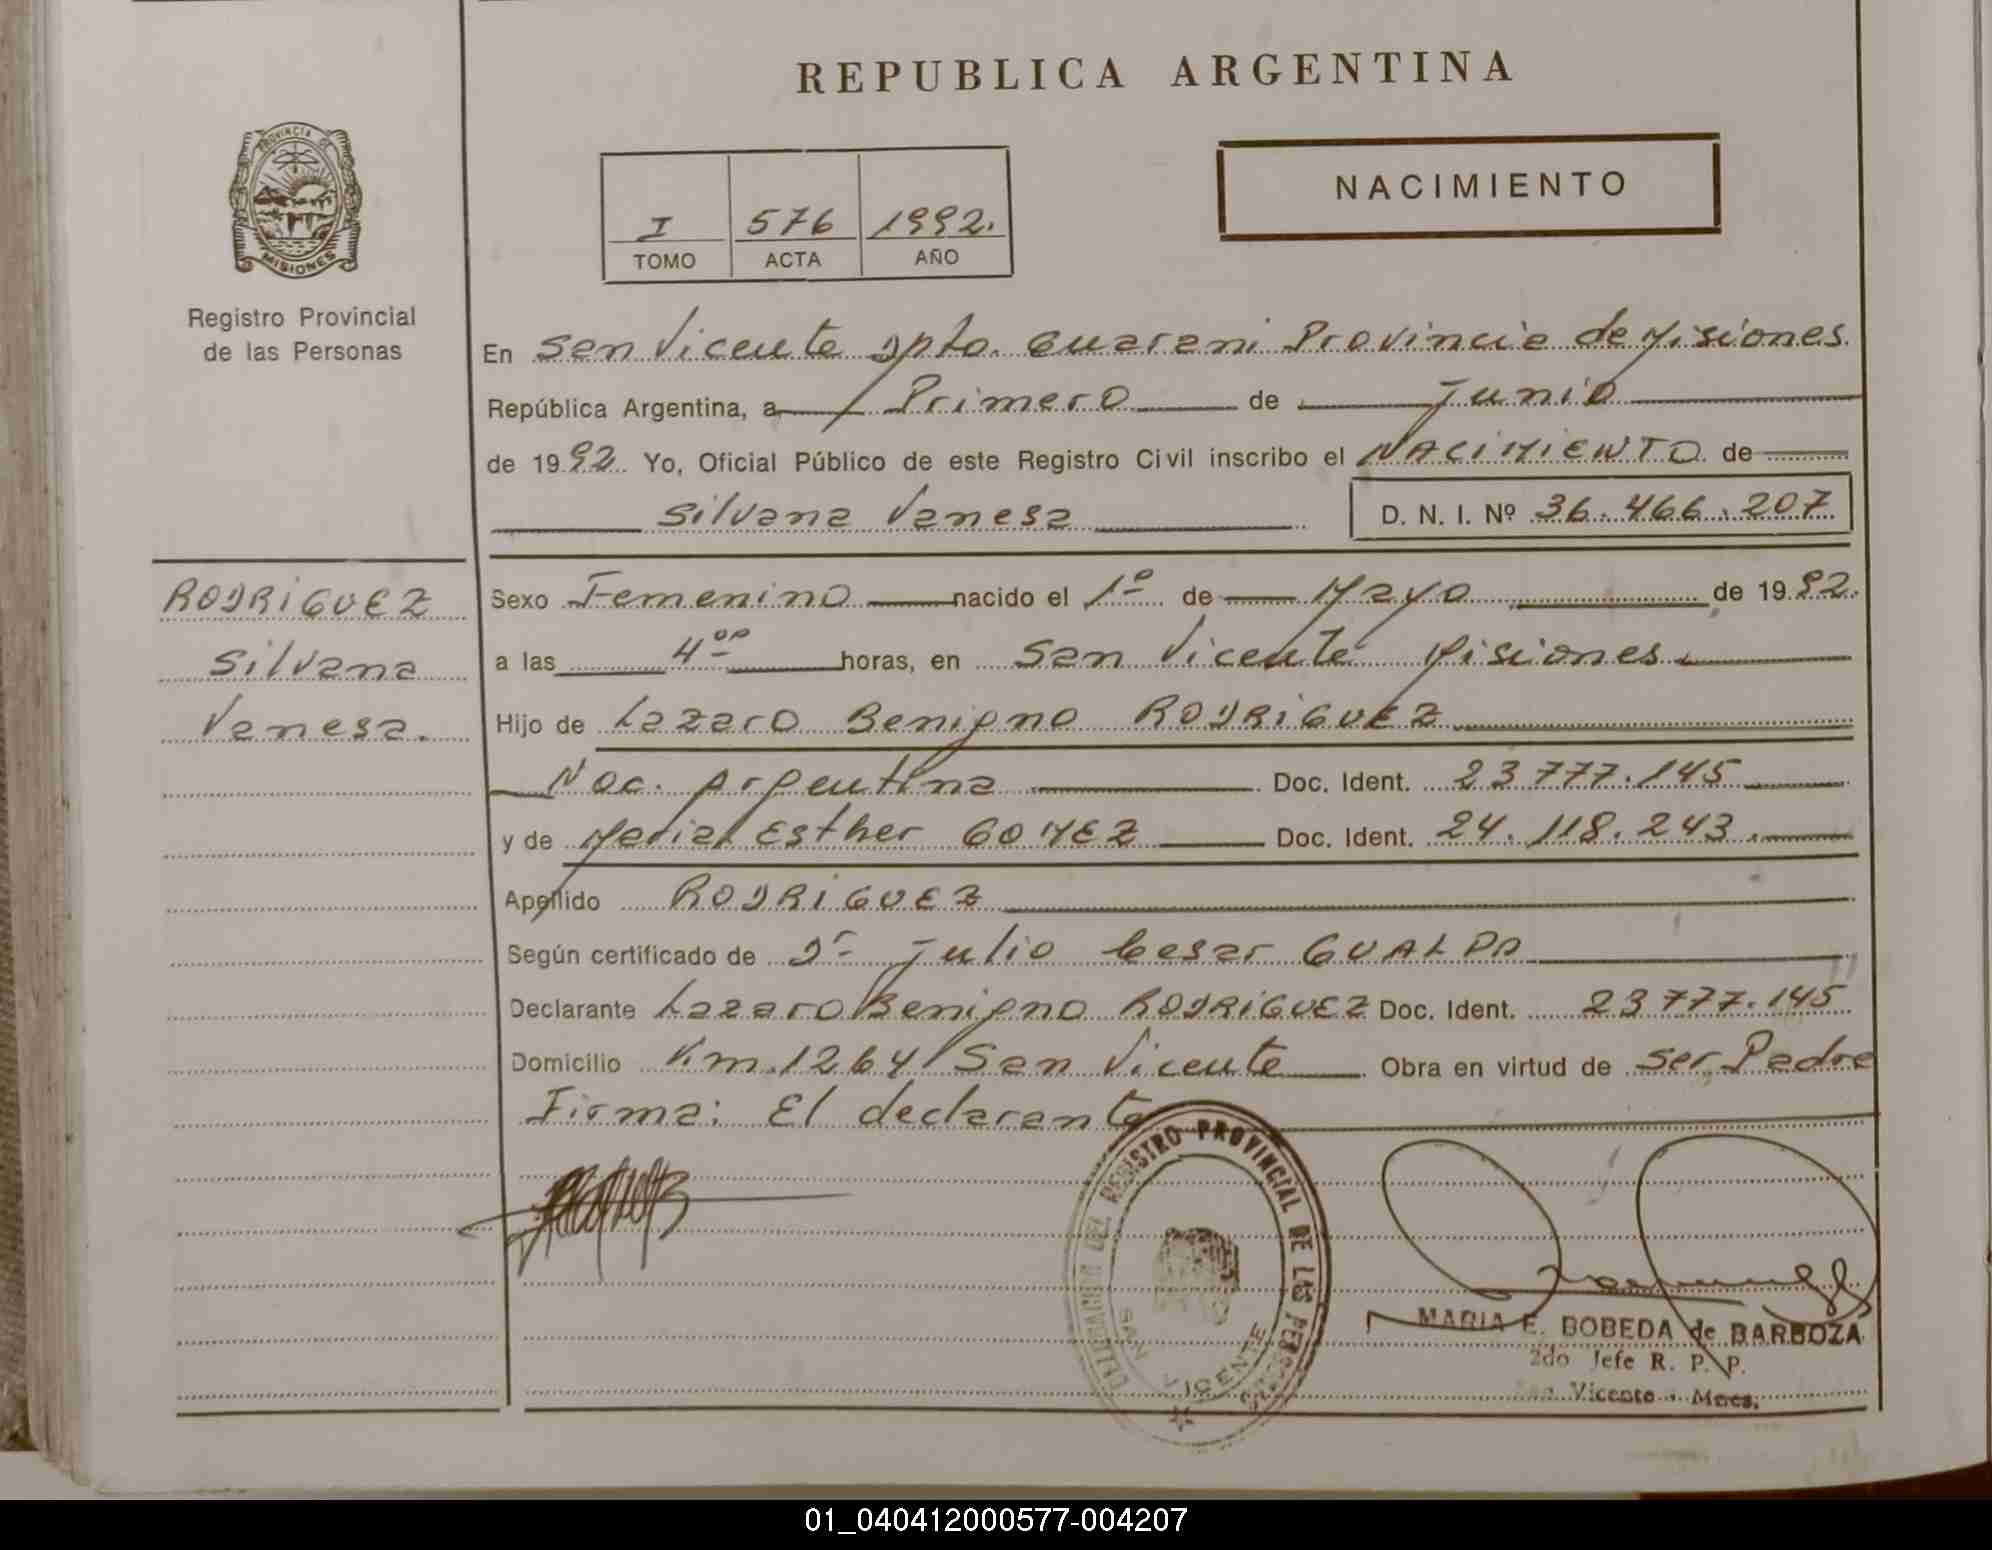 REPUBLICA ARGENTINA
PROVINCIA DE
MISIONES
Registro Provincial
de las Personas
I 576 1992.
TOMO ACTA AÑO
NACIMIENTO
En San Vicente Dpto. Guarani Provincia de Misiones.
República Argentina, a Primero de Junio
de 1992. Yo, Oficial Público de este Registro Civil inscribo el NACIMIENTO de
Silvana Vanesa D. N. I. Nº 36.466.207
RODRIGUEZ
Silvana
Vanesa.
Sexo Femenino nacido el 1º de Mayo de 1992.
a las 4ºº horas, en San Vicente Misiones.
Hijo de Lazaro Benigno RODRIGUEZ
Nac. Argentina Doc. Ident. 23777.145
y de Maria Esther GOMEZ Doc. Ident. 24.118.243.
Apellido RODRIGUEZ
Según certificado de Dr Julio Cesar GUALPA
Declarante Lazaro Benigno RODRIGUEZ Doc. Ident. 23777.145
Domicilio Km.1264 San Vicente Obra en virtud de ser Padre
Firma: El declarante
DELEGACION DEL REGISTRO PROVINCIAL DE LAS PERSONAS
SAN VICENTE
MARIA E. BOBEDA de BARBOZA
2do Jefe R. P. P.
San Vicente - Mnes.
01_040412000577-004207